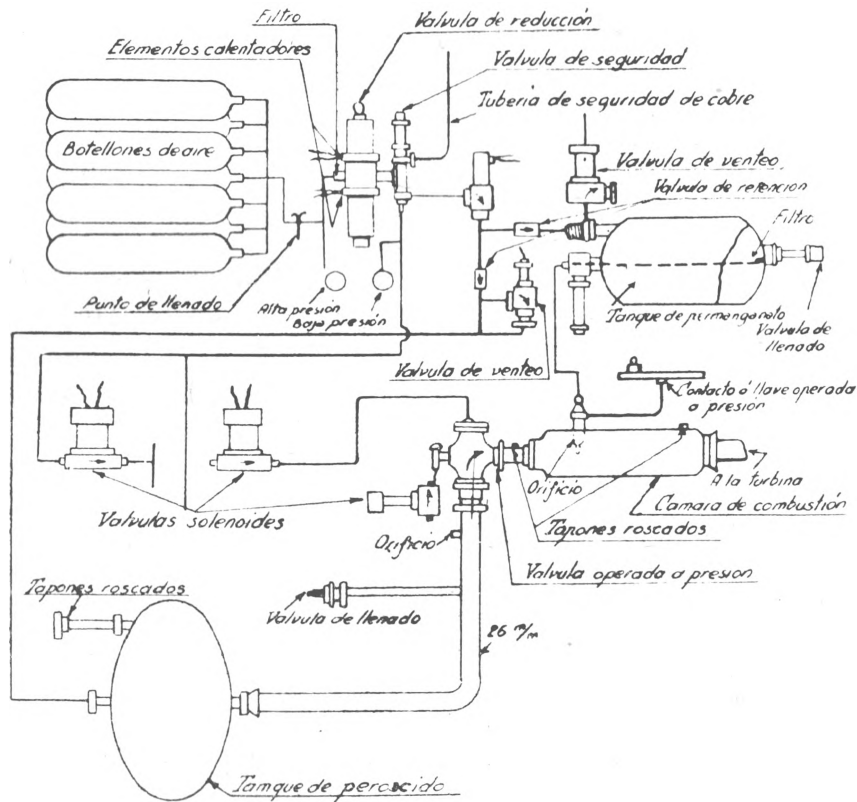 Filtro
Valvula de reducción
Elementos calentadores
Valvula de seguridad
Tubería de seguridad de cobre
Botellones de aire
Valvula de venteo
Valvula de retención
Filtro
Punto de llenado
Alta presión
Baja presión
Tanque de permanganato
Valvula de
llenado
Valvula de venteo
Contacto ó llave operada
a presión
A la turbina
Orificio
Camara de combustión
Valvulas solenoides
Tapones roscados
Orificio
Valvula operada a presion
Tapones roscados
Valvula de llenado
26 m/m
Tamque de peroscido